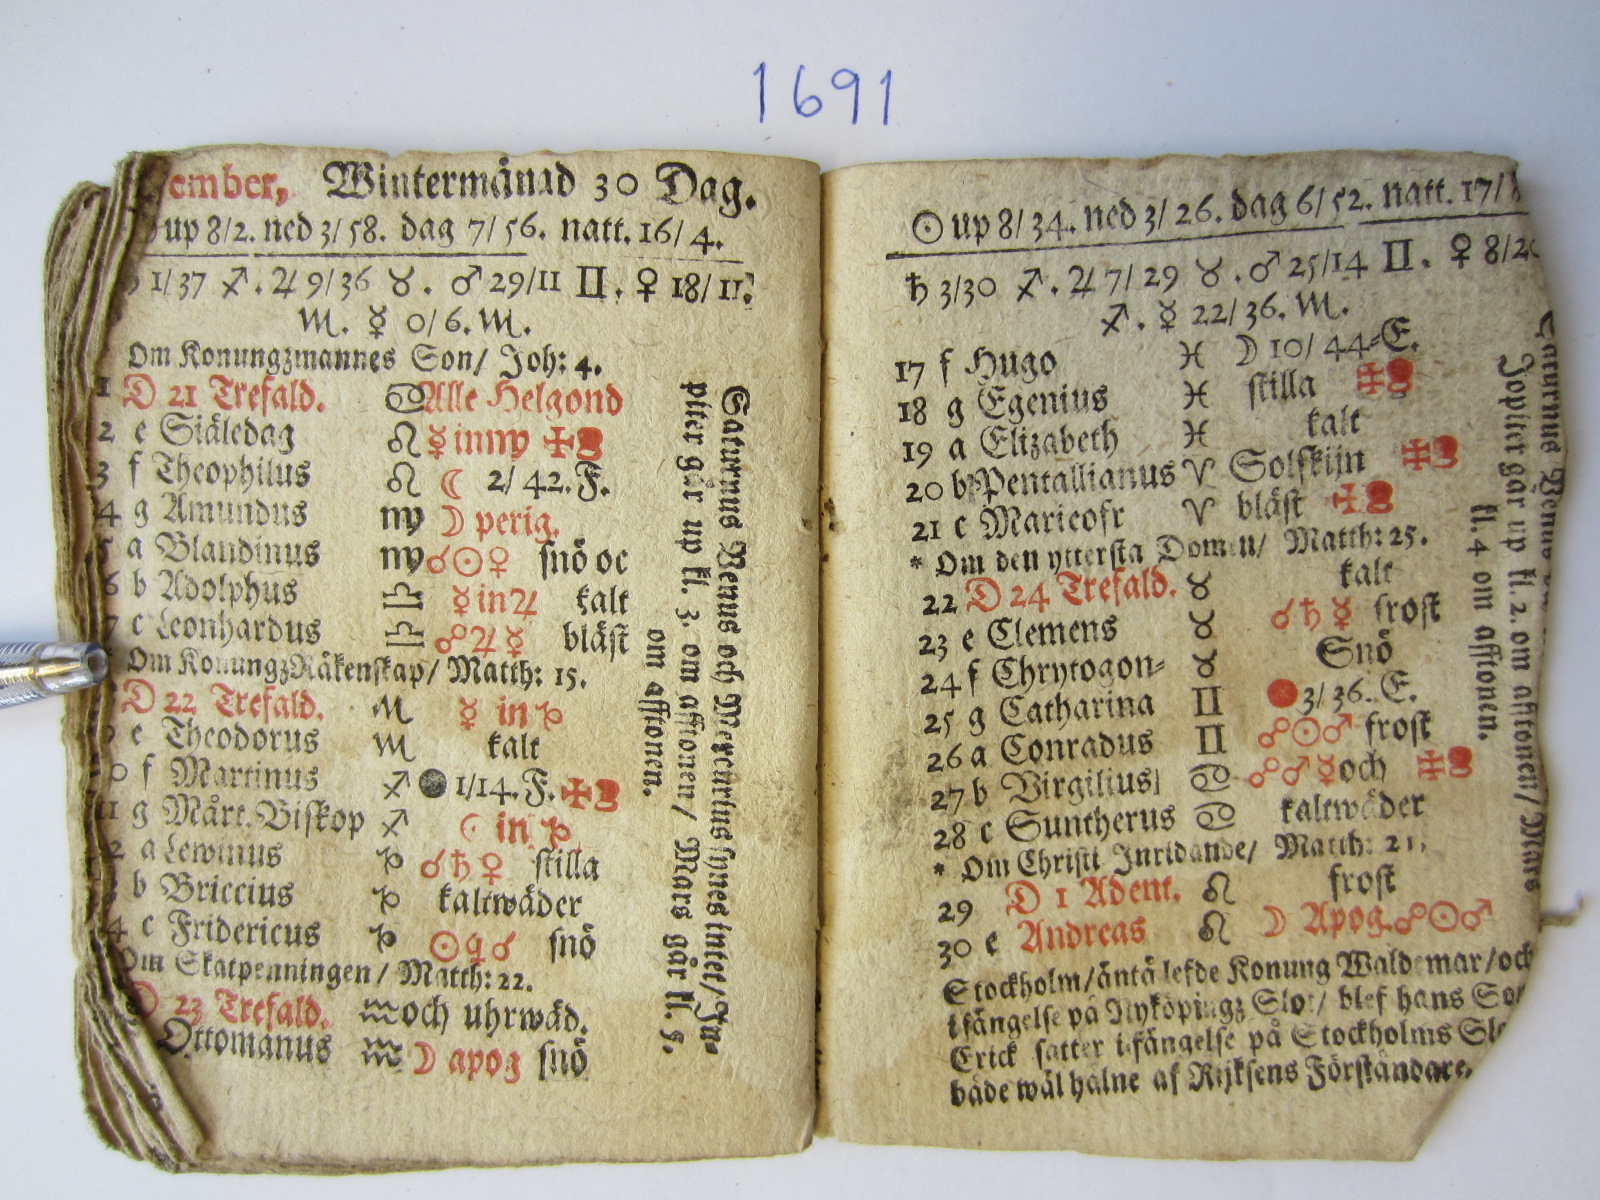 1691
ember, Wintermånad 30 Dag.
up 8/2. ned 3/58. dag 7/56. natt. 16/4.
♄ 1/37 ♐. ♃ 9/36 ♉. ♂ 29/11 ♊. ♀ 18/11.
♏. ☿ 0/6. ♏.
Om Konungzmannes Son/ Joh: 4.
1 D 21 Trefald. ♋ Alle Helgond
2 e Siäledag ♌ ☿ in ♍
3 f Theophilus ♌ ☾ 2/42. F.
4 g Amundus ♍ ☽ perig.
5 a Blandinus ♍ ☌☉♀ snö oc
6 b Adolphus ♎ ☿ in ♃ kalt
7 c Leonhardus ♎ ☍♃☿ bläst
Om Konungz Räkenskap/ Matth: 15.
D 22 Trefald. ♏ ☿ in ♑
e Theodorus ♏ kalt
0 f Martinus ♐ ● 1/14. F.
11 g Mårt. Biskop ♐ ☾ in ♑
2 a Lewinus ♑ ☌♄♀ stilla
b Briccius ♑ kaltwäder
4 c Fridericus ♑ ☉ ☌ snö
Om Skatpenningen/ Matth: 22.
D 23 Trefald. ♒ och uhrwäd.
Ottomanus ♒ ☽ apog snö
Saturnus Venus och Mercurius synes intet/ Ju-
piter går up kl. 3 om afftonen/ Mars går kl. 5.
om afftonen.
☉ up 8/34. ned 3/26. dag 6/52. natt. 17/8
♄ 3/30 ♐. ♃ 7/29 ♉. ♂ 25/14 ♊. ♀ 8/20
♐. ☿ 22/36. ♏.
17 f Hugo ♓ ☽ 10/44-E.
18 g Egenius ♓ stilla
19 a Elizabeth ♓ kalt
20 b Pentallianus ♈ Solskijn
21 c Marieofr ♈ bläst
* Om den yttersta Domen/ Matth: 25.
22 D 24 Trefald. ♉ kalt
23 e Clemens ♉ ☌♄☿ frost
24 f Chrytogon- ♉ Snö
25 g Catharina ♊ ● 3/36. E.
26 a Conradus ♊ ☍☉♂ frost
27 b Virgilius ♋ ☍♂☿ och
28 c Suntherus ♋ kaltwäder
* Om Christi Inridande/ Matth: 21.
29 D 1 Adent. ♌ frost
30 e Andreas ♌ ☽ Apog. ☍☉♂
Stockholm/ äntä lefde Konung Waldemar/ och
i fängelse på Nyköpingz Slot/ blef hans Son
Erick satter i fängelse på Stockholms Slo
både wäl halne af Rijksens Förståndare.
Saturnus Venus Mars
Jupiter går up kl. 2. om afftonen/
kl. 4 om afftonen.